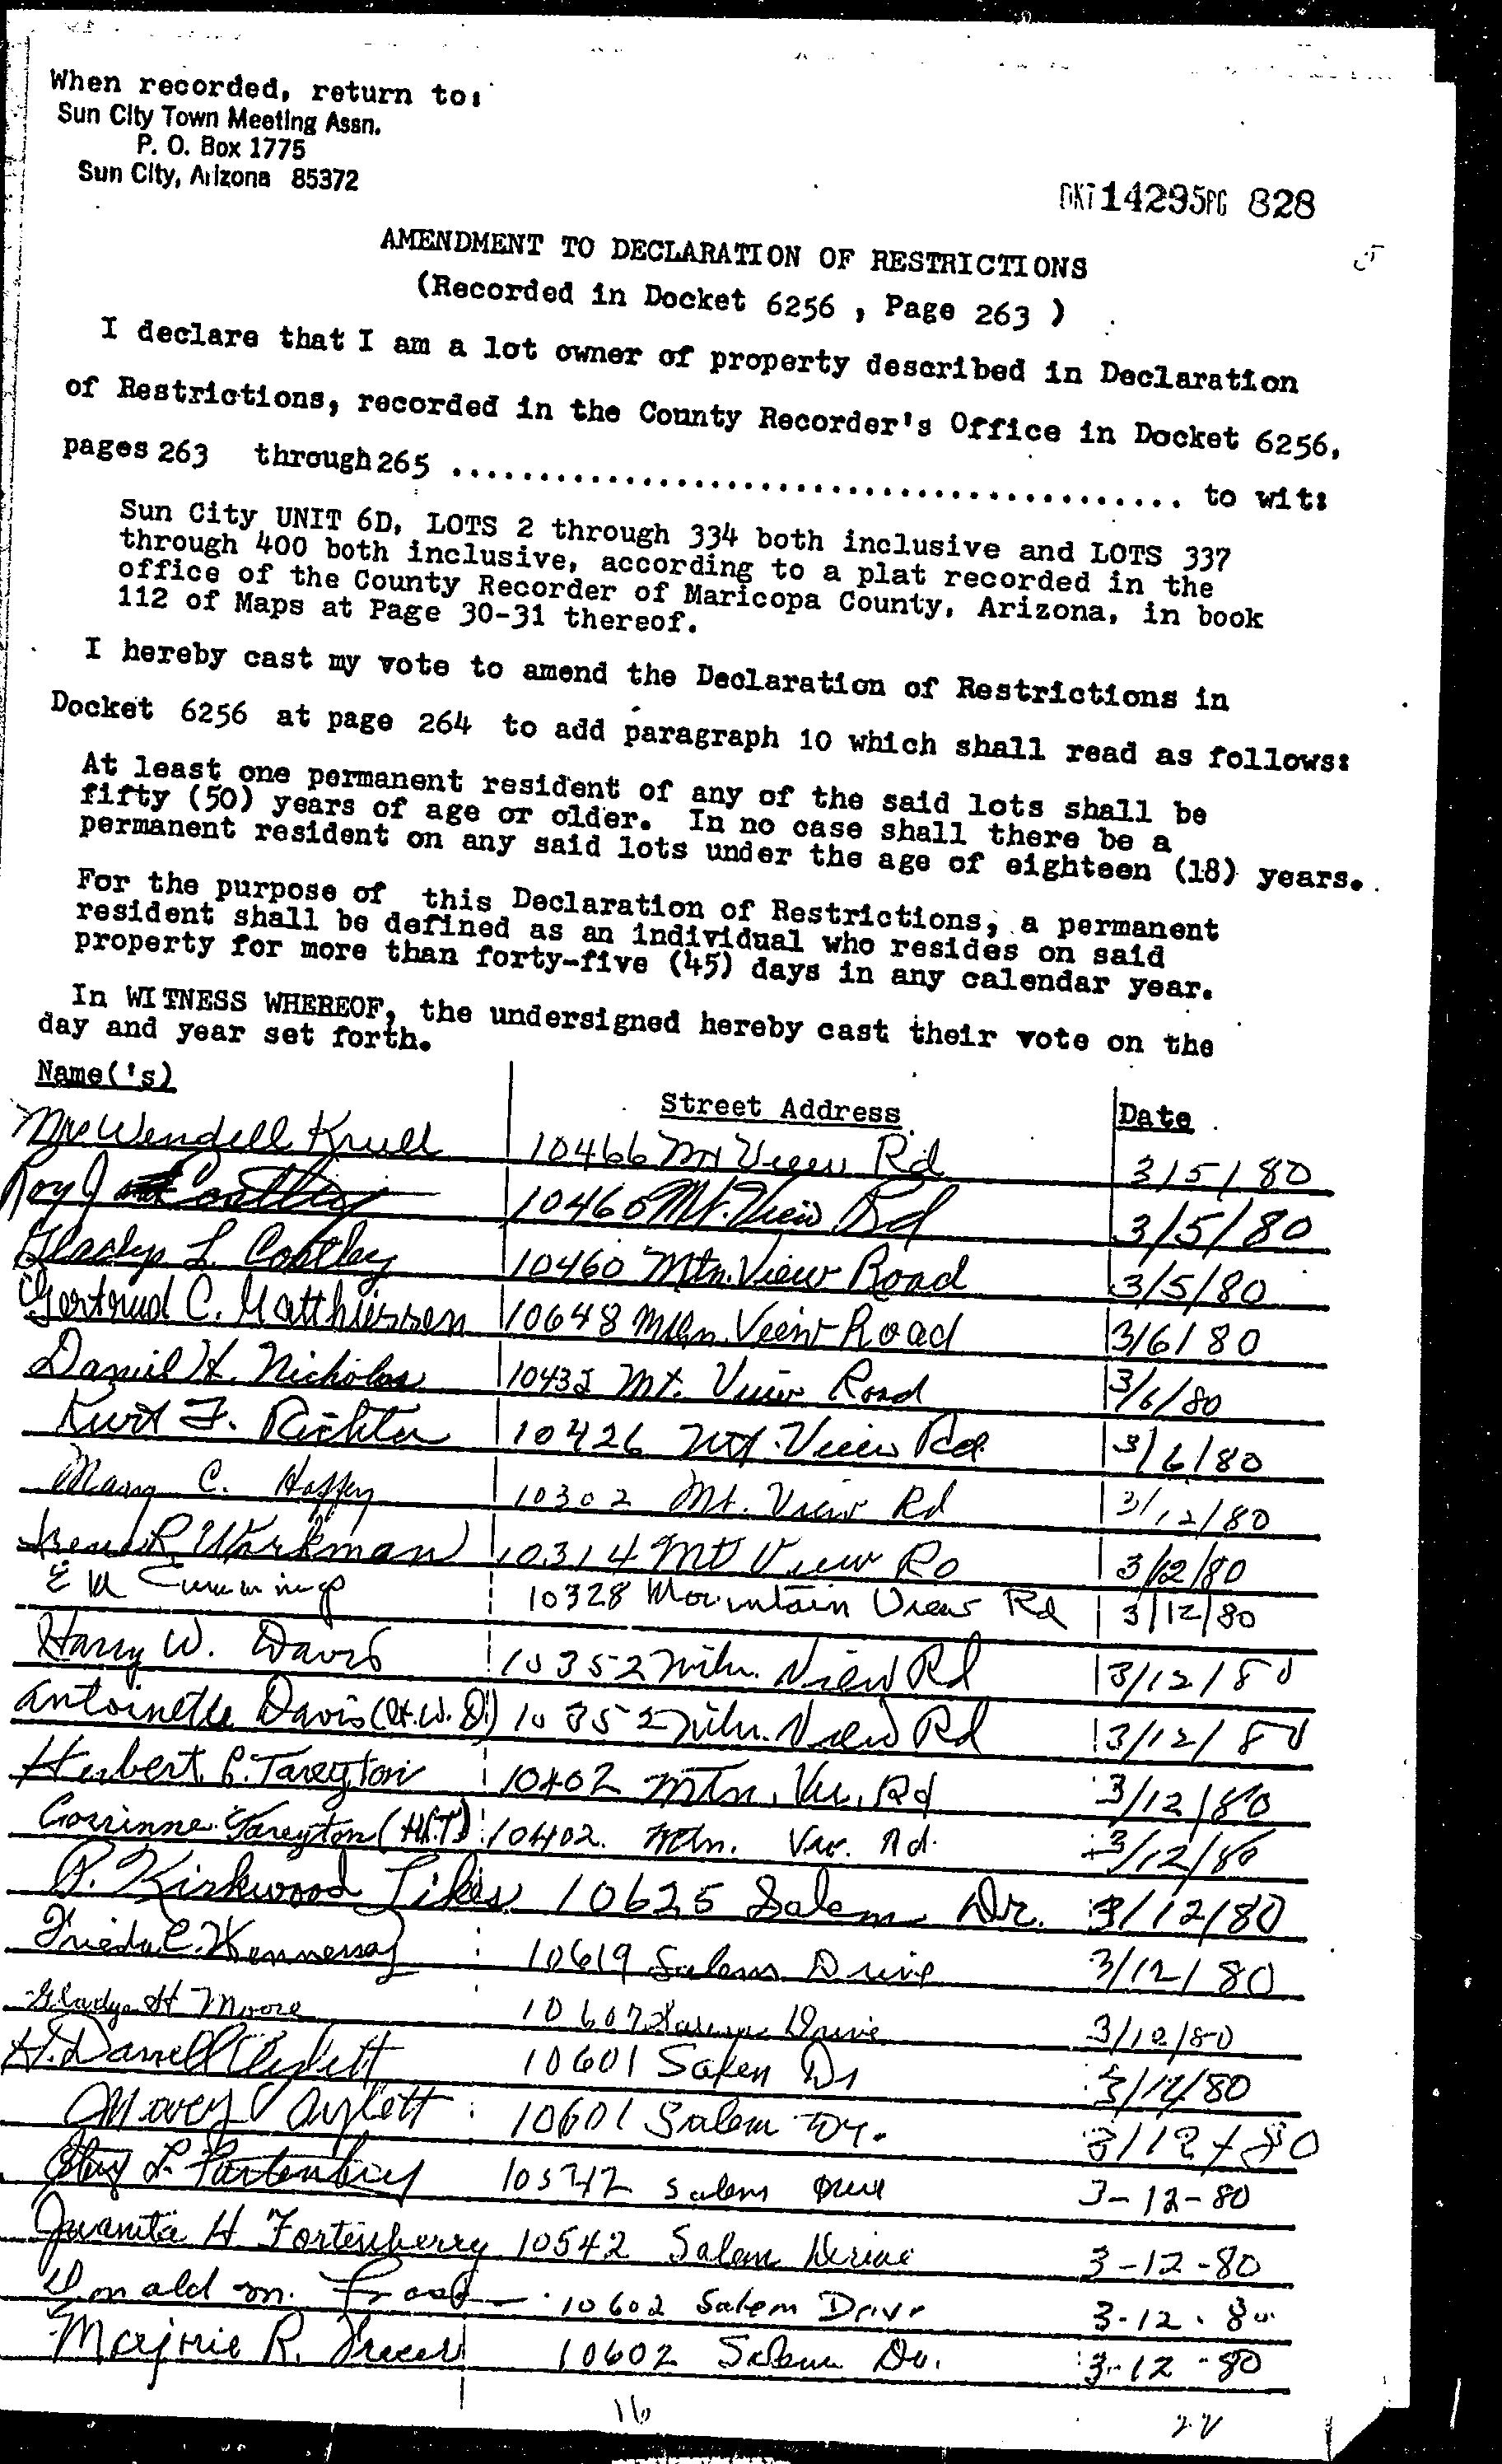 When recorded, return to:
Sun City Town Meeting Assn.
P. O. Box 1775
Sun City, Arizona 85372
DKT 14295 PG 828
AMENDMENT TO DECLARATION OF RESTRICTIONS
(Recorded in Docket 6256 , Page 263 )
I declare that I am a lot owner of property described in Declaration
of Restrictions, recorded in the County Recorder's Office in Docket 6256,
pages 263 through 265 .......................................... to wit:
Sun City UNIT 6D, LOTS 2 through 334 both inclusive and LOTS 337
through 400 both inclusive, according to a plat recorded in the
office of the County Recorder of Maricopa County, Arizona, in book
112 of Maps at Page 30-31 thereof.
I hereby cast my vote to amend the Declaration of Restrictions in
Docket 6256 at page 264 to add paragraph 10 which shall read as follows:
At least one permanent resident of any of the said lots shall be
fifty (50) years of age or older. In no case shall there be a
permanent resident on any said lots under the age of eighteen (18) years.
For the purpose of this Declaration of Restrictions, a permanent
resident shall be defined as an individual who resides on said
property for more than forty-five (45) days in any calendar year.
In WITNESS WHEREOF, the undersigned hereby cast their vote on the
day and year set forth.
Name('s) Street Address Date
Wendell Krull 10466 Mt View Rd 3/5/80
Roy J 10460 Mt. View Rd 3/5/80
Gladys L. 10460 Mtn. View Road 3/5/80
Gertrud C. Matthiessen 10648 View Road 3/6/80
Daniel H. Nicholas Mt. View Road 3/6/80
Kurt F. Richter 10426 Mt. View Rd. 3/6/80
Mary C. 10302 Mt. View Rd 3/12/80
R. Workman 10314 Mt View Rd 3/12/80
E M Cummings 10328 Mountain View Rd 3/12/80
Harry W. Davis 10352 Mtn. View Rd 3/12/80
Antoinette Davis (H.W.D.) 10352 Mtn. View Rd 3/12/80
Herbert Tareyton 10402 Mtn. Vu. Rd 3/12/80
Corrinne Tareyton 10402 Mtn. Rd. 3/12/80
R. Kirkwood Likes 10625 Salem Dr. 3/12/80
Frieda C. Hennessy 10619 Salem Drive 3/12/80
Gladys H Moore 10607 Drive 3/12/80
H. Darrell 10601 Salem Dr 3/12/80
Aylett 10601 Salem Dr. 3/12/80
L. Salem Drive 3-12-80
Juanita H Fortenberry 10542 Salem Drive 3-12-80
Donald M. 10602 Salem Drive 3-12-80
Marjorie R. 10602 Salem Dr. 3-12-80
16